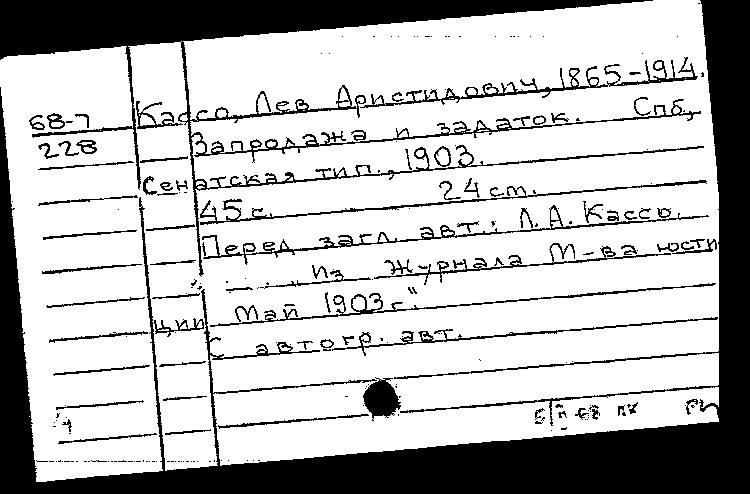 68-7 Кассо, Лев Аристидович, 1865-1914.
228 Запродажа и задаток. Спб,
Сенатская тип., 1903.
45 с. 24 cm.
Перед загл. авт.: Л.А. Кассо.
„Из Журнала М-ва юсти
ции Май 1903 г."
С автогр. авт.